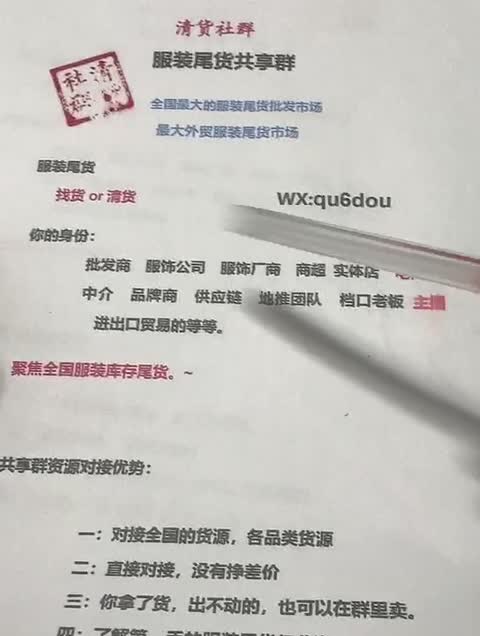 清货社群
服装尾货共享群
清
社
全国最大的服装尾货批发市场
最大外贸服装尾货市场
服装尾货
找货 or 清货
WX:qu6dou
你的身份：
批发商 服饰公司 服饰厂商 商超 实体店
中介 品牌商 供应链 地推团队 档口老板 主播
进出口贸易的等等。
聚焦全国服装库存尾货。~
共享群资源对接优势：
一：对接全国的货源，各品类货源
二：直接对接，没有挣差价
三：你拿了货，出不动的，也可以在群里卖。